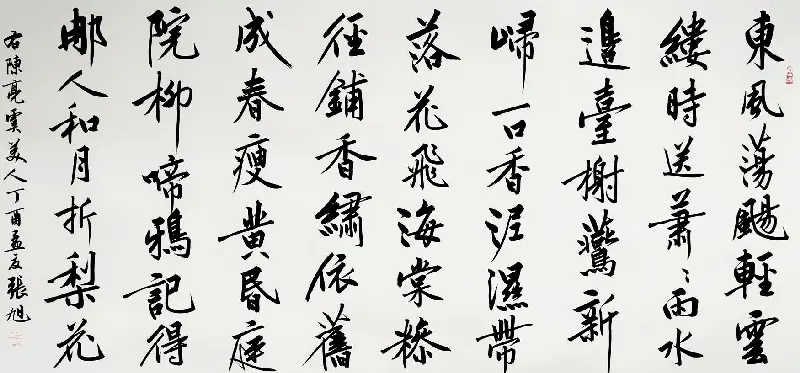 東風蕩颺輕雲
縷時送蕭〻雨水
邊臺榭鷰新
歸一口香泥濕帶
落花飛海棠糝
徑鋪香繡依舊
成春瘦黄昏庭
院柳啼鴉記得
那人和月折梨花
右陳亮虞美人丁酉孟夏張旭